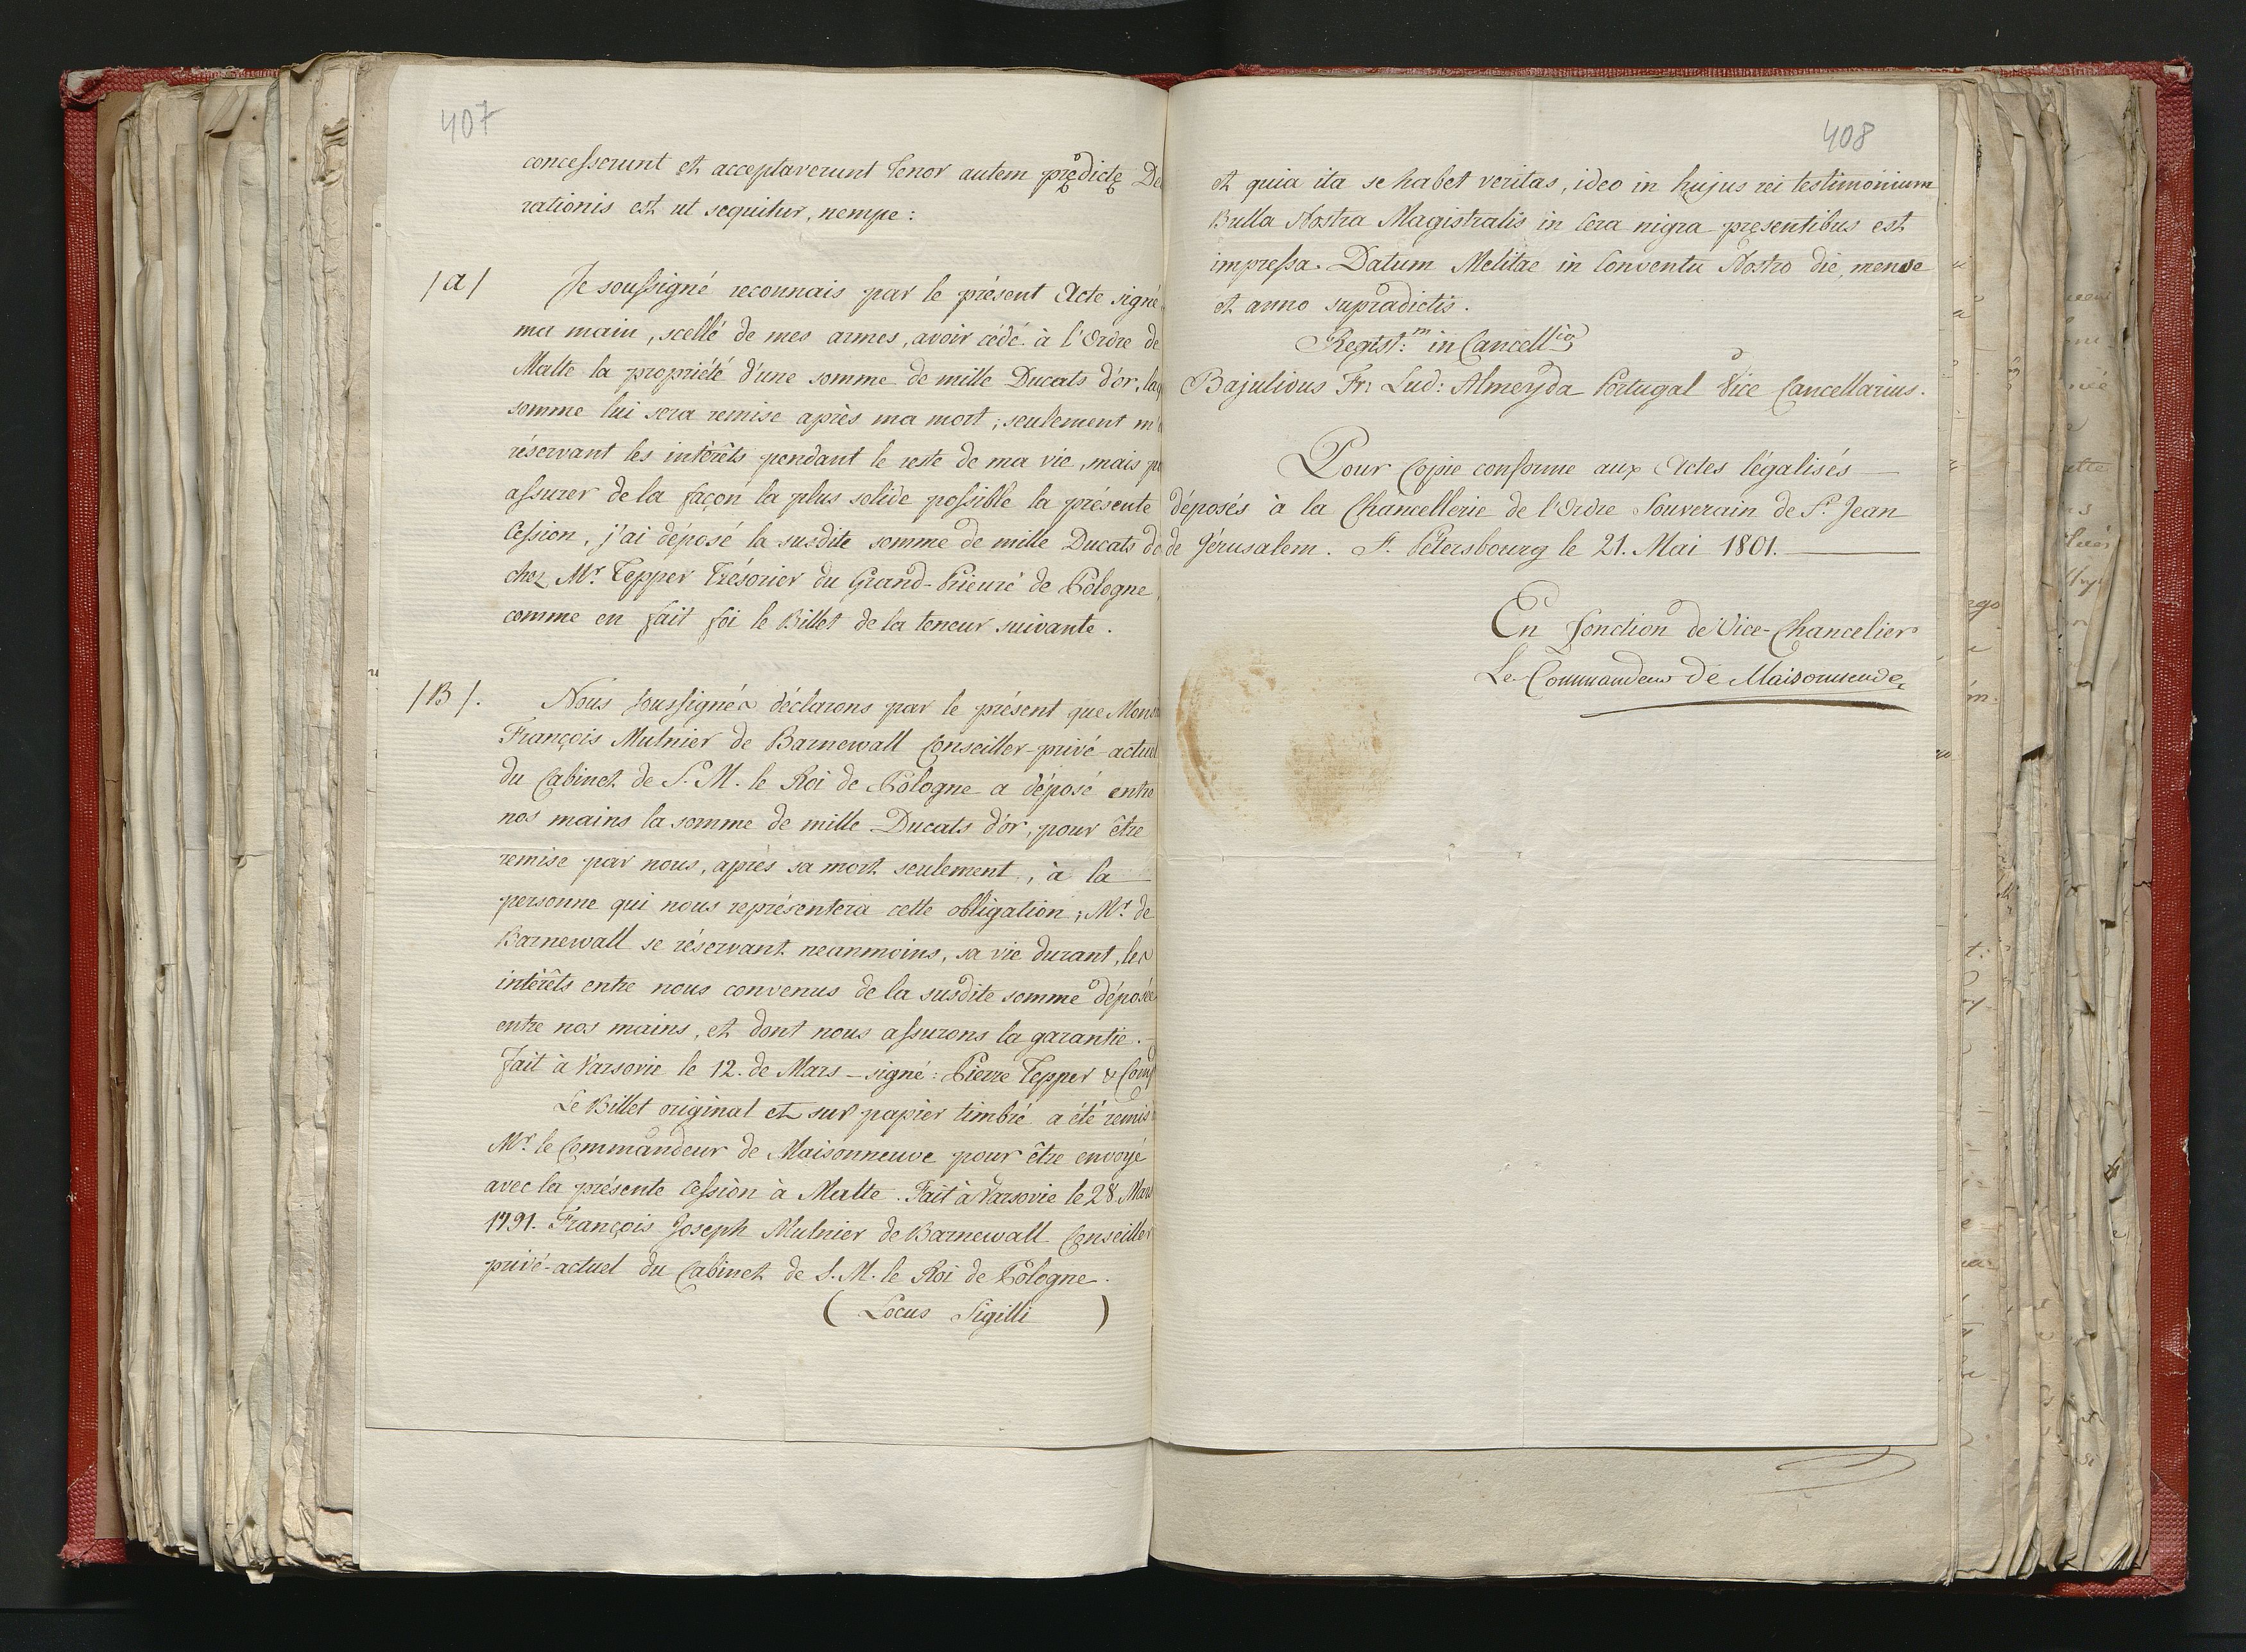 407
concesserunt et acceptaverunt Tenor autem prędictę De
rationis est ut sequitur, nempe:
/a/ Je soussigné reconnais par le présent Acte signé
ma main, scellé de mes armes, avoir cédé à l'Ordre de
Malte la propriété d'une somme de mille Ducats d'or, laq
somme lui sera remise après ma mort; seulement m'
réservant les intérêts pendant le reste de ma vie, mais po
assurer de la façon la plus solide possible la présente
Cession, j'ai déposé la susdite somme de mille Ducats d'o
chez Mr. Tepper Trésorier du Grand-Prieuré de Pologne,
comme en fait foi le Billet de la teneur suivante.
/B/. Nous soussignés déclarons par le présent que Mons
François Mulnier de Barnewall Conseiller-privé-actuel
du Cabinet de S. M. le Roi de Pologne a déposé entre
nos mains la somme de mille Ducats d'or, pour être
remise par nous, après sa mort seulement, à la
personne qui nous représentera cette obligation; Mr. de
Barnewall se réservant neanmoins, sa vie durant, les
intérêts entre nous convenus de la susdite somme déposée
entre nos mains, et dont nous assurons la garantie.
Fait à Varsovie le 12. de Mars - signé: Pierre Tepper & Comp
Le Billet original et sur papier timbré a été remis
Mr. le Commandeur de Maisonneuve pour être envoyé
avec la présente Cession à Malte. Fait à Varsovie le 28 Mars
1791. François Joseph Mulnier de Barnewall Conseiller
privé-actuel du Cabinet de S. M. le Roi de Pologne.
( Locus Sigilli )
408
et quia ita se habet veritas, ideo in hujus rei testimonium
Bulla Nostra Magistralis in Cera nigra pręsentibus est
impressa. Datum Melitae in Conventu Nostro die, mense
et anno supradictis.
Regist:m in Cancellia
Bajulivus Fr: Lud: Almeyda Portugal Vice Cancellarius.
Pour Copie conforme aux Actes légalisés
déposés à la Chancellerie de l'Ordre Souverain de St. Jean
de Jérusalem. St. Pétersbourg le 21. Mai 1801.
En fonction de Vice-Chancelier
Le Commandeur de Maisonneuve